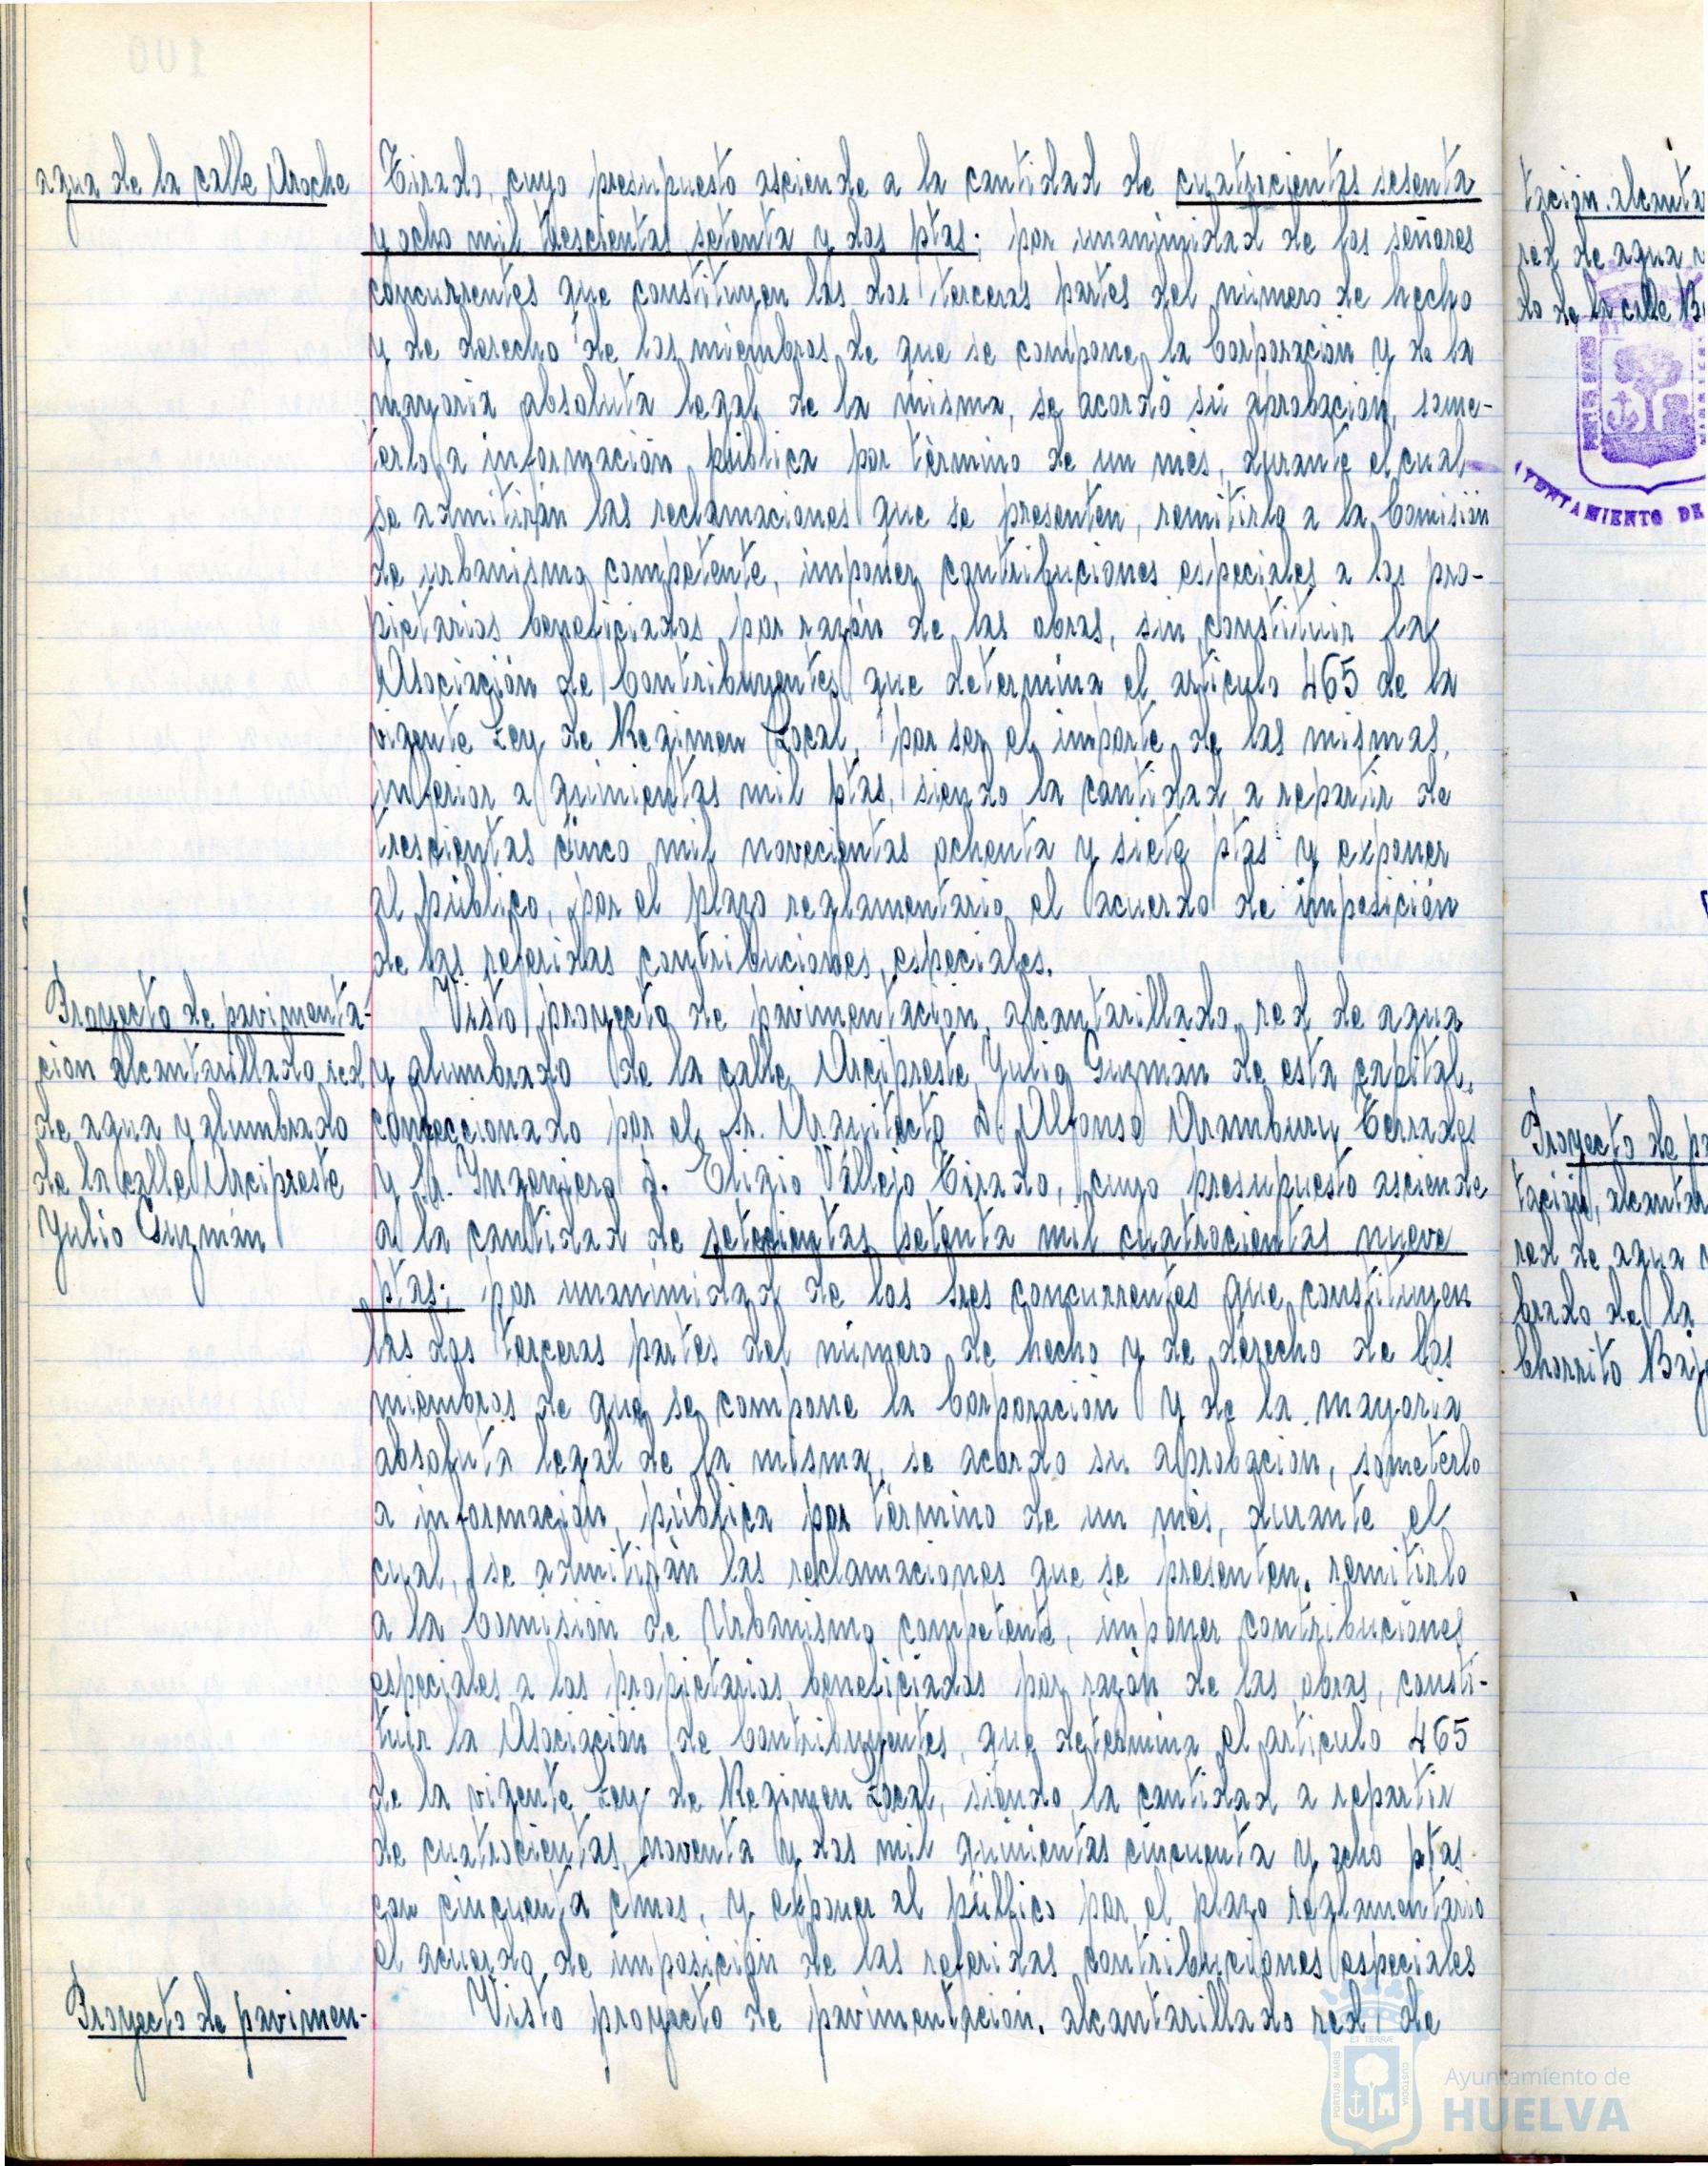 agua de la calle Aroche
Tirado, cuyo presupuesto asciende a la cantidad de cuatrocientas sesenta
y ocho mil trescientas setenta y dos ptas; por unanimidad de los señores
concurrentes que constituyen las dos terceras partes del número de hecho
y de derecho de los miembros de que se compone la Corporación y de la
mayoría absoluta legal de la misma, se acordó su aprobación, some-
terlo a información pública por término de un mes, durante el cual
se admitirán las reclamaciones que se presenten, remitirlo a la Comisión
de urbanismo competente, imponer contribuciones especiales a los pro-
pietarios beneficiados por razón de las obras, sin constituir la
Asociación de Contribuyentes que determina el artículo 465 de la
vigente Ley de Regimen Local, por ser el importe de las mismas,
inferior a quinientas mil ptas, siendo la cantidad a repartir de
trescientas cinco mil novecientas ochenta y siete ptas y exponer
al público, por el plazo reglamentario el acuerdo de imposición
de las referidas contribuciones especiales.
Proyecto de pavimenta-
ción alcantarillado, red
de agua y alumbrado
de la calle Arcipreste
Julio Guzmán
Visto proyecto de pavimentación, alcantarillado, red de agua
y alumbrado de la calle Arcipreste Julio Guzmán de esta capital,
confeccionado por el Sr. Arquitecto D. Alfonso Aramburu Terrades
y Sr. Ingeniero D. Eligio Vallejo Tirado, cuyo presupuesto asciende
a la cantidad de setecientas setenta mil cuatrocientas nueve
ptas; por unanimidad de los sres concurrentes que constituyen
las dos terceras partes del número de hecho y de derecho de los
miembros de que se compone la Corporación y de la mayoría
absoluta legal de la misma, se acordó su aprobación, someterlo
a información pública por término de un mes, durante el
cual, se admitirán las reclamaciones que se presenten, remitirlo
a la Comisión de Urbanismo competente, imponer contribuciones
especiales a los propietarios beneficiados por razón de las obras, consti-
tuir la Asociación de Contribuyentes, que determina el artículo 465
de la vigente Ley de Regimen Local, siendo la cantidad a repartir
de cuatrocientas noventa y dos mil quinientas cincuenta y ocho ptas
con cincuenta ctmos, y exponer al público por el plazo reglamentario
el acuerdo de imposición de las referidas contribuciones especiales
Proyecto de pavimen-
Visto proyecto de pavimentación, alcantarillado red de
tación, alcanta
red de agua
do de la calle
AYUNTAMIENTO DE
Proyecto de pa
tación, alcantar
red de agua
brado de la
Chorrito Baj
PORTUS MARIS
ET TERRAE
CUSTODIA
Ayuntamiento de
HUELVA